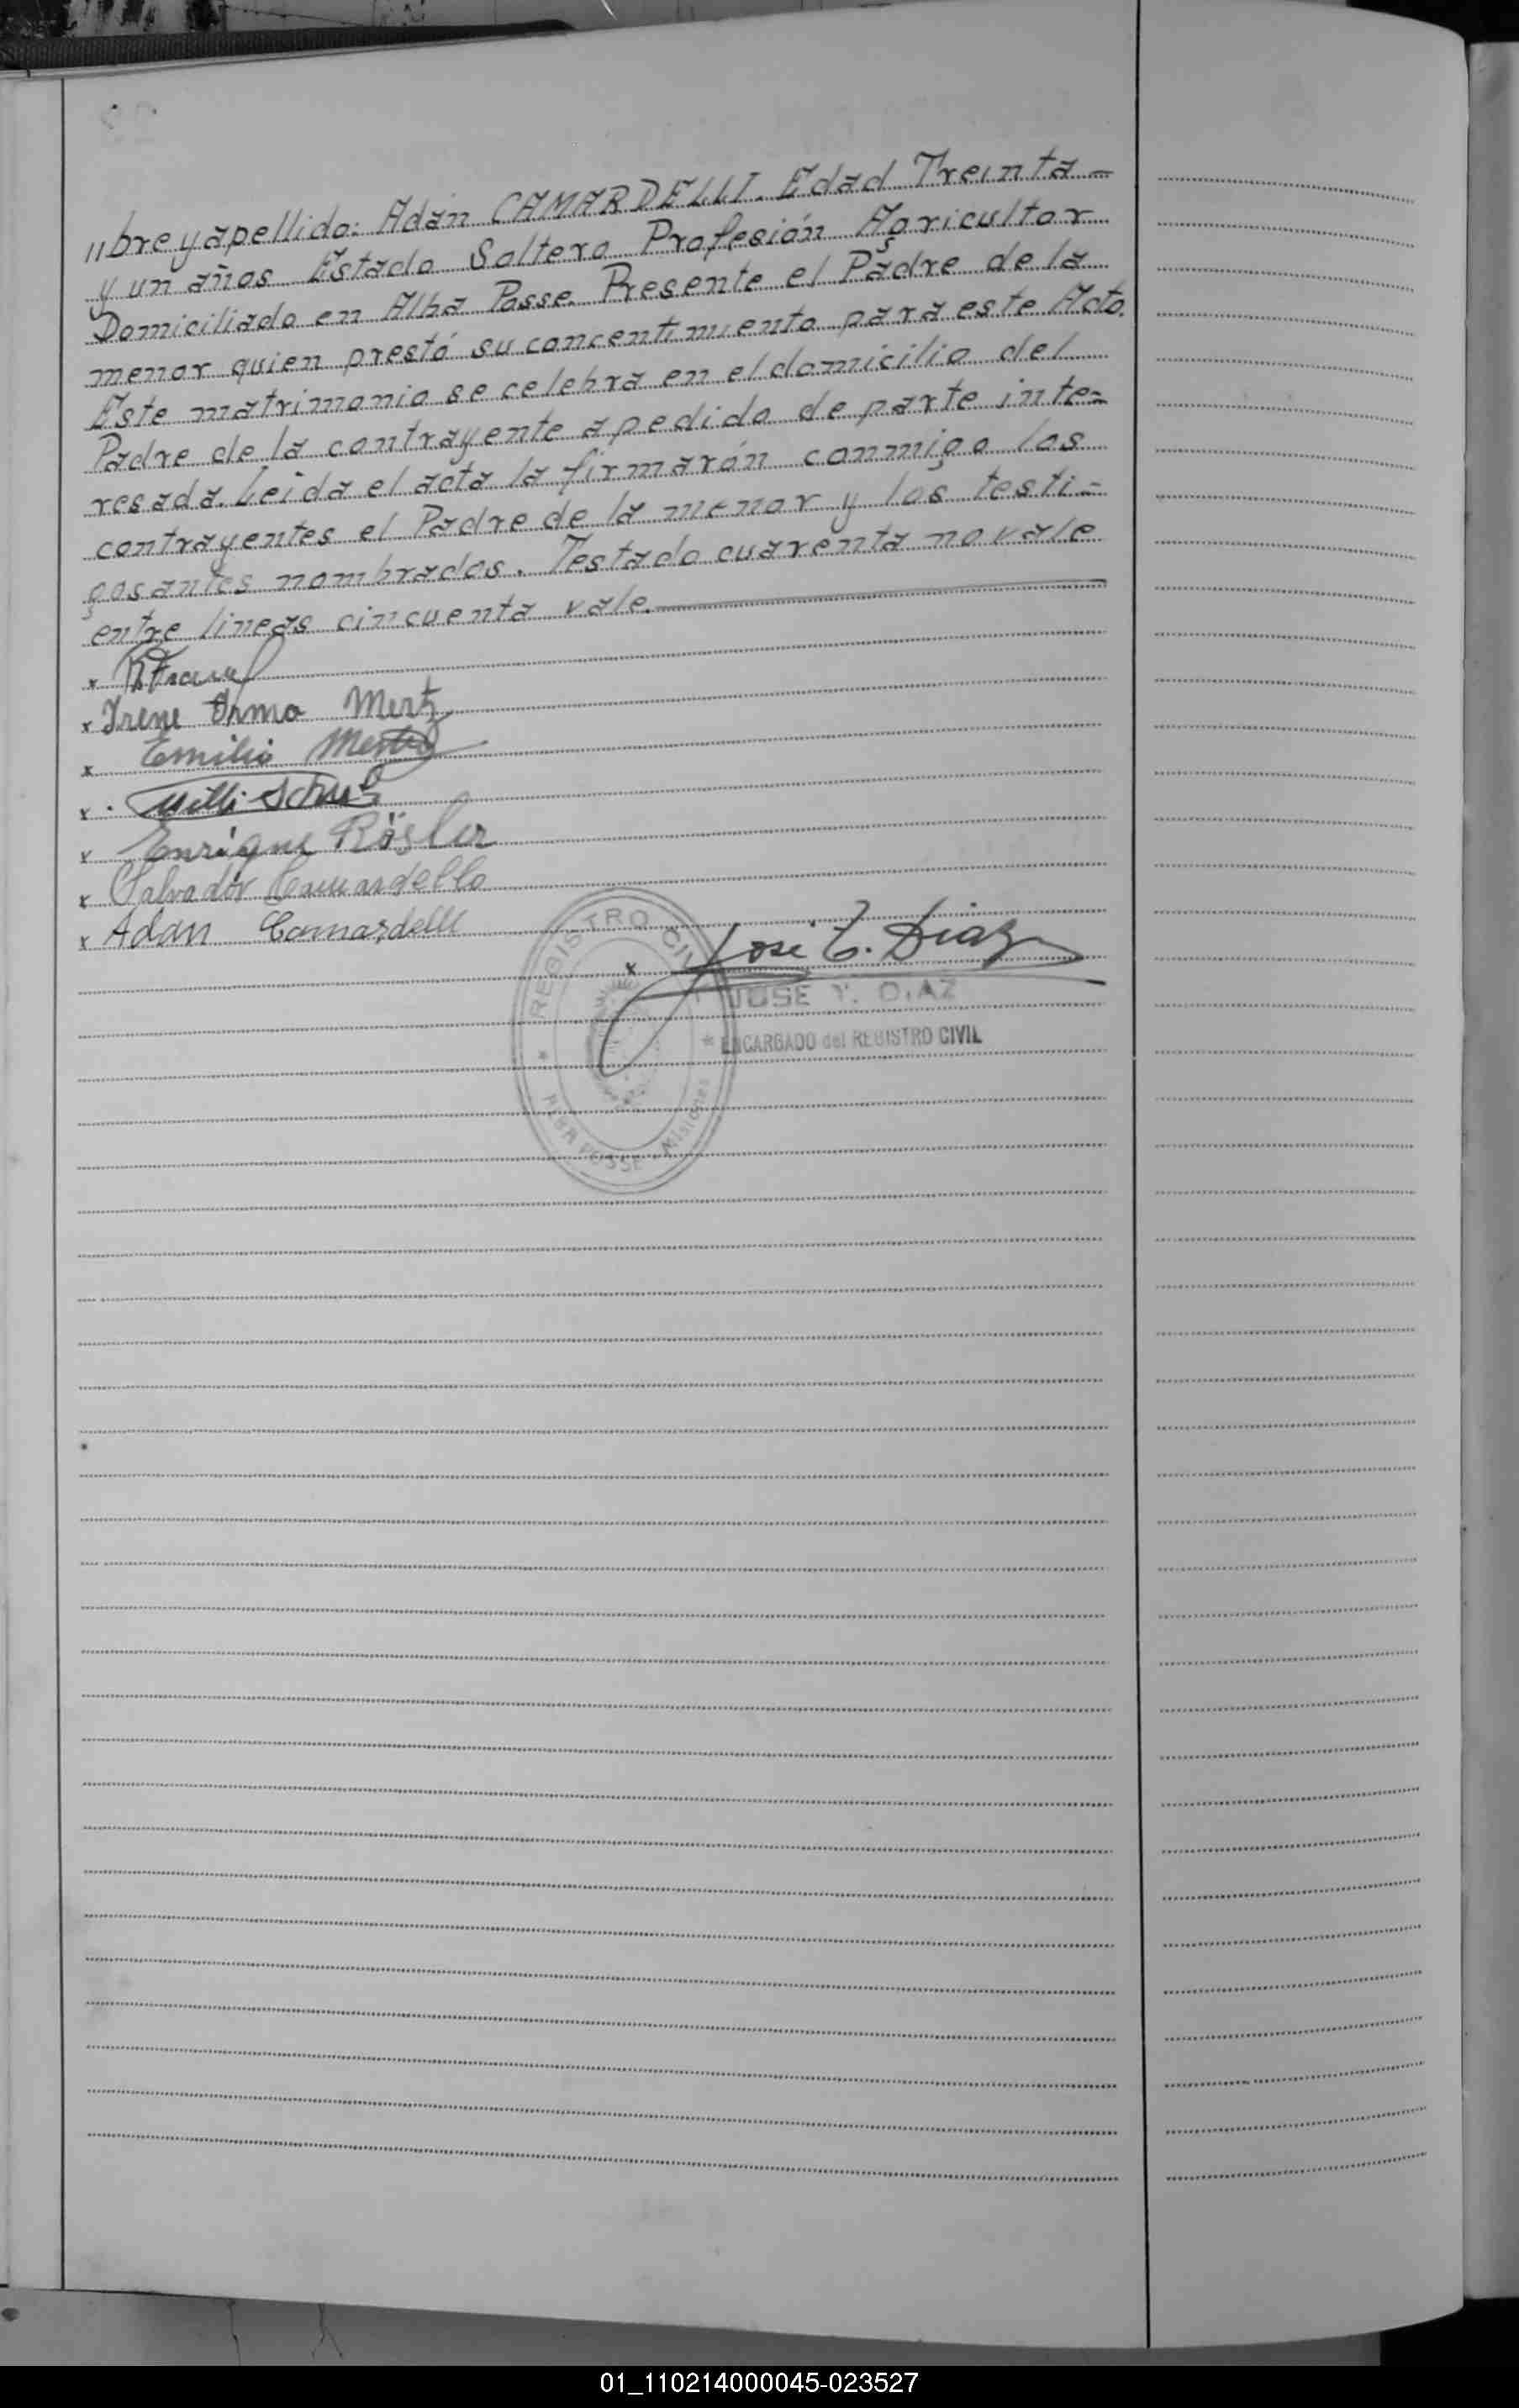 "bre y apellido: Adán CAMARDELLI. Edad Treinta-
y un años Estado Soltero Profesión Agricultor
Domiciliado en Alba Posse. Presente el Padre de la
menor quien prestó su concentimiento para este Acto.
Este matrimonio se celebra en el domicilio del
Padre de la contrayente a pedido de parte inte=
resada. Leida el acta la firmarón conmigo los
contrayentes el Padre de la menor y los testi=
gos antes nombrados. Testado cuarenta no vale
entre lineas cincuenta vale.
x
x Irene Irma Mertz
x Emilio Mertz
x Willi
x Enrique Rösler
x Salvador Camardelli
x Adan Camardelli
x José Y. Diaz
JOSE Y. DIAZ
ENCARGADO del REGISTRO CIVIL
REGISTRO CIVIL
ALBA POSSE Misiones
01_110214000045-023527